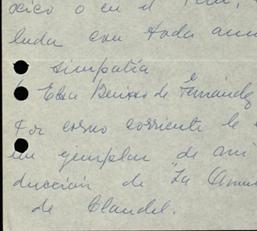 xico o en el Perú,
luda con toda
simpatía
Elsa de Fernández
Por correo corriente le
un ejemplar de mi
ducción de "La
de Claudel.